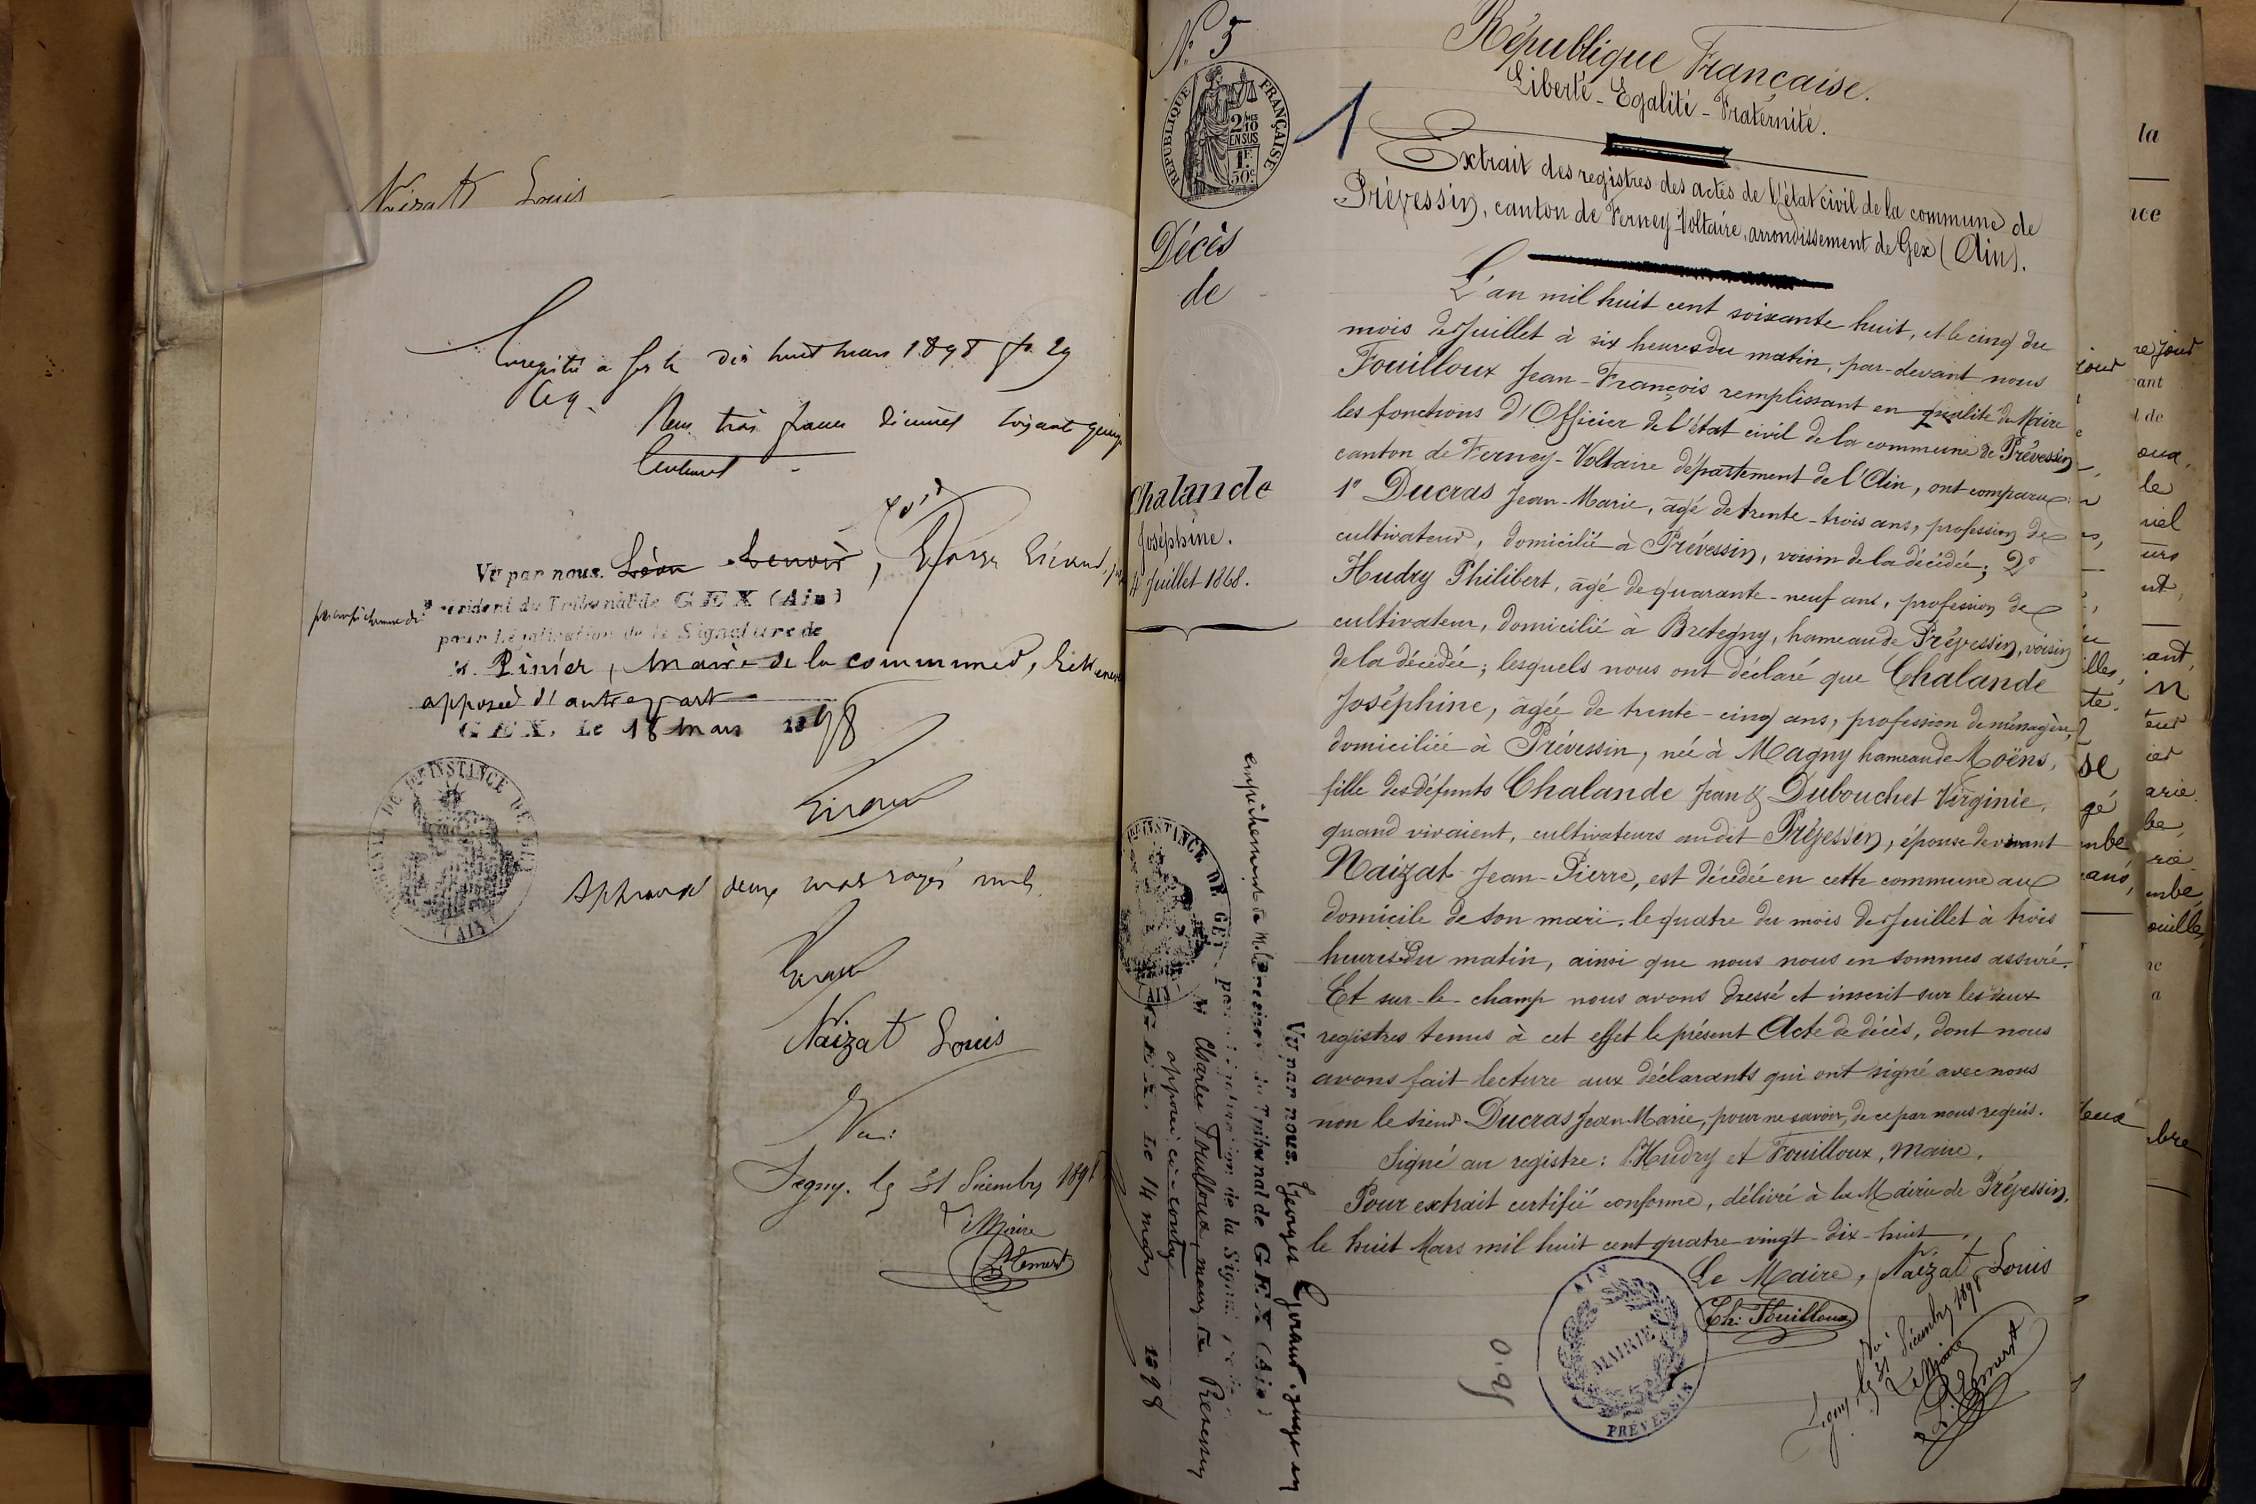 Naizat Louis
dix huit mars 1898 fo 29
trois francs
Centimes
Vu par nous. Léon Lenoir,
Président du Tribunal de GEX (Ain)
pour Légalisation de la Signature de
M. Pinier, Maire de la commune,
apposée d'autre part
GEX, Le 18 Mars 1898
Giraud
TRIBUNAL DE 1RE INSTANCE DE GEX
(AIN)
Approuvé deux mots rayés nuls.
Giraud
Naizat Louis
Vu:
Segny, le 31 Décembre 1898
Le Maire
No 5
RÉPUBLIQUE FRANÇAISE
2 MES 10 EN SUS
1F. 50c.
1
Décès
de
Chalande
Joséphine.
4 Juillet 1868.
République Française.
Liberté - Egalité - Fraternité.
Extrait des registres des actes de l'état civil de la commune de
Prévessin, canton de Ferney-Voltaire, arrondissement de Gex (Ain).
L'an mil huit cent soixante huit, et le cinq du
mois de Juillet à six heures du matin, par-devant nous
Fouilloux Jean-François remplissant en qualité de Maire
les fonctions d'Officier de l'état civil de la commune de Prévessin
canton de Ferney-Voltaire département de l'Ain, ont comparu
1° Ducras Jean-Marie, âgé de trente-trois ans, profession de
cultivateur, domicilié à Prévessin, voisin de la décédée; 2°
Hudry Philibert, âgé de quarante-neuf ans, profession de
cultivateur, domicilié à Bretegny, hameau de Prévessin, voisin
de la décédée; lesquels nous ont déclaré que Chalande
Joséphine, âgée de trente-cinq ans, profession de ménagère,
domiciliée à Prévessin, née à Magny hameau de Moëns,
fille des défunts Chalande Jean & Dubouchet Virginie,
quand vivaient, cultivateurs audit Prévessin, épouse devivant
Naizat Jean-Pierre, est décédée en cette commune au
domicile de son mari, le quatre du mois de Juillet à trois
heures du matin, ainsi que nous nous en sommes assuré.
Et sur-le-champ nous avons dressé et inscrit sur les deux
registres tenus à cet effet le présent Acte de décès, dont nous
avons fait lecture aux déclarants qui ont signé avec nous
non le sieur Ducras Jean-Marie, pour ne savoir, de ce par nous requis.
Signé au registre: P. Hudry et Fouilloux, Maire.
Pour extrait certifié conforme, délivré à la Mairie de Prévessin,
le huit Mars mil huit cent quatre-vingt-dix-huit.
Le Maire, Naizat Louis
Ch: Fouilloux
MAIRIE
AIN
PRÉVESSIN
Vu
Segny, le 31 Décembre 1898
Le Maire
Vu par nous. Georges Giraud, juge en
empêchement de M. le Président du Tribunal de GEX (Ain)
pour Légalisation de la Signature de
M Charles Fouilloux, maire de Prevessin
apposée ci-contre
GEX, Le 14 mars 1898
TRIBUNAL DE 1RE INSTANCE DE GEX
(AIN)